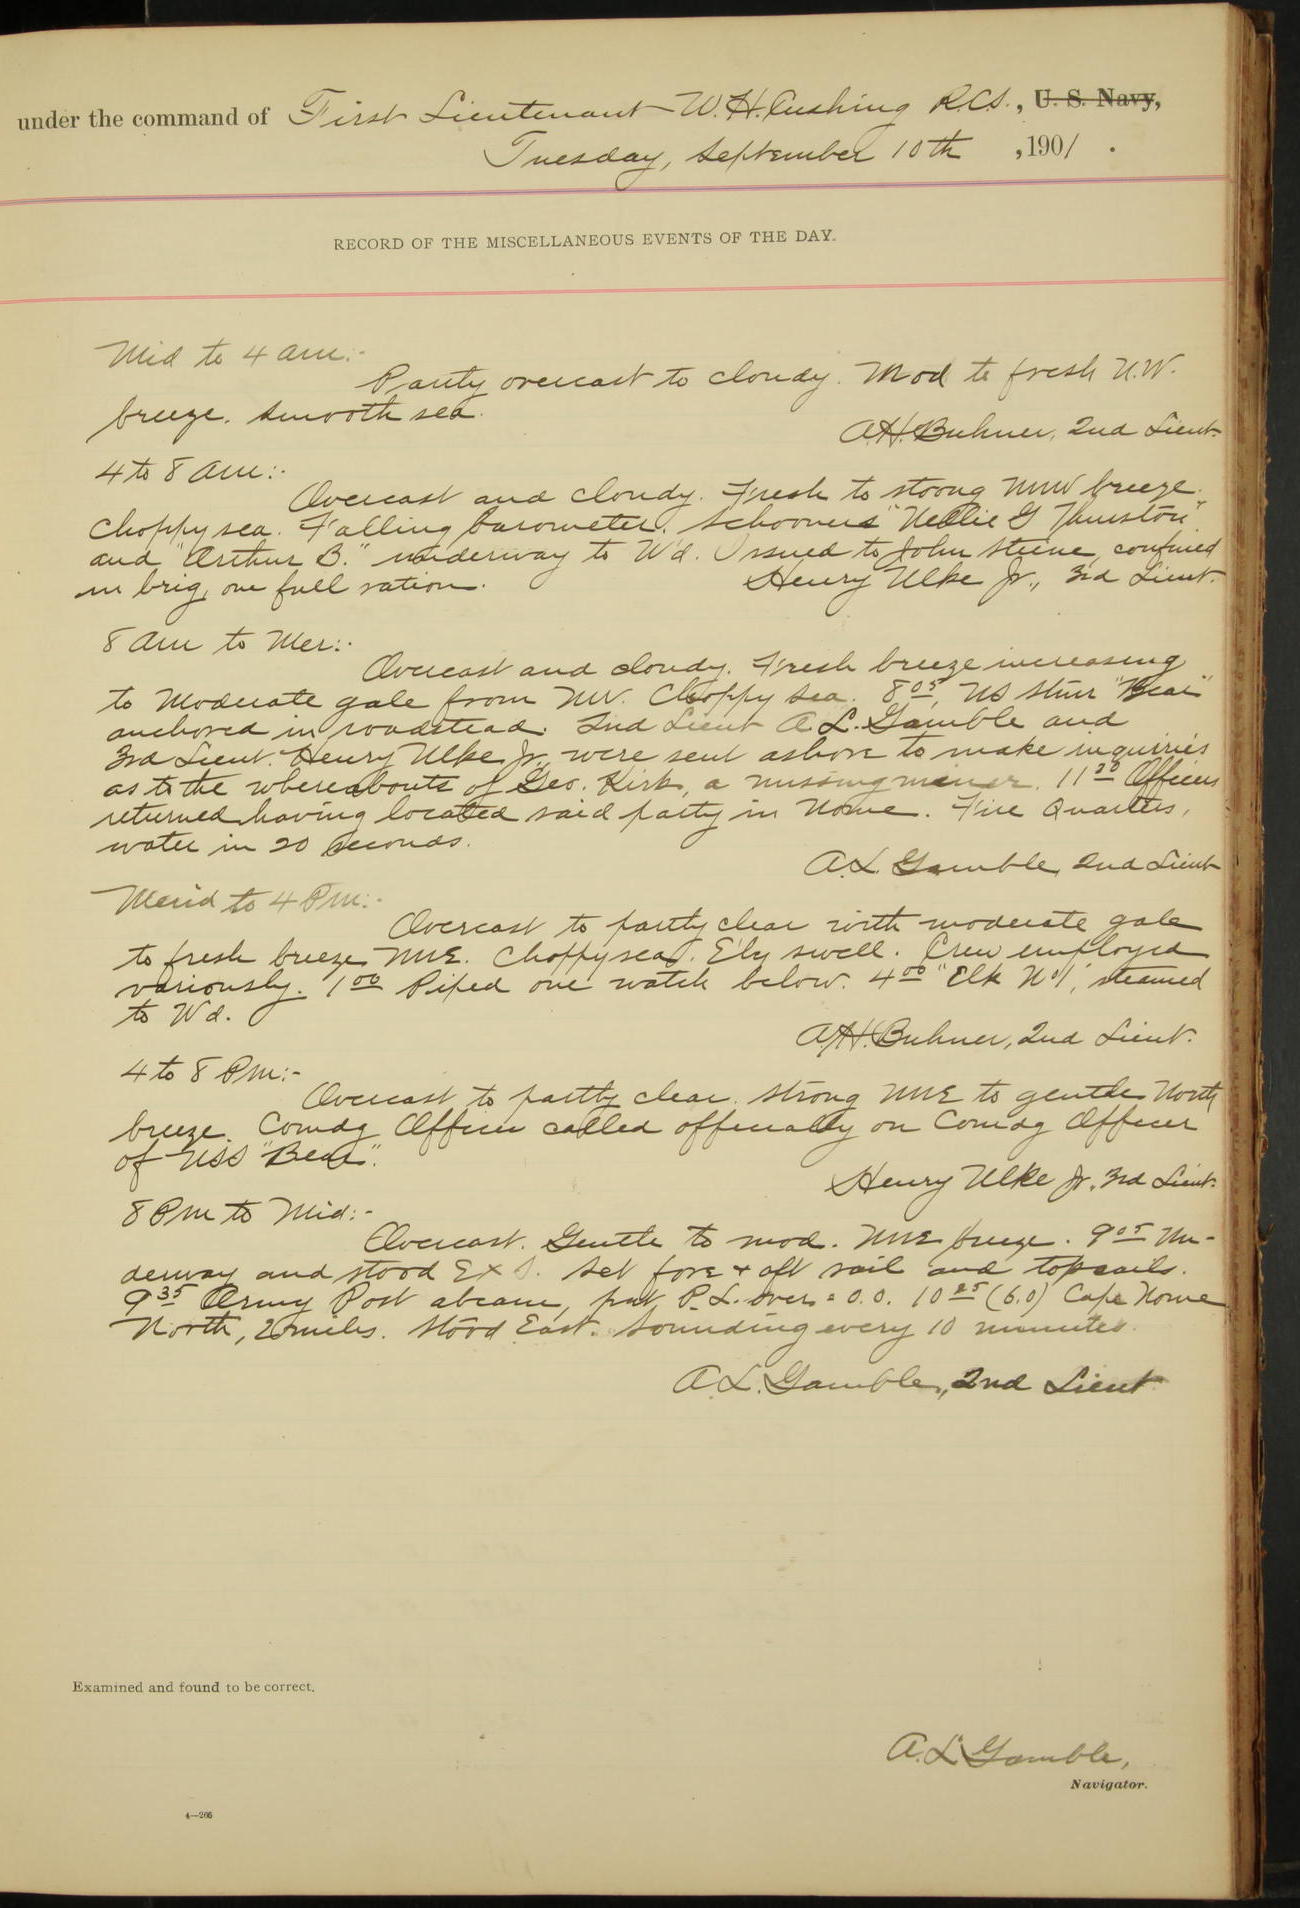 under the command of First Lieutenant W. H. Cushing R.C.S., U. S. Navy,
Tuesday, September 10th, 1901.
RECORD OF THE MISCELLANEOUS EVENTS OF THE DAY.
Mid to 4 am:-
Partly overcast to cloudy. Mod to fresh N.W.
breeze. Smooth sea.
A.H. Buhner, 2nd Lieut.
4 to 8 am:-
Overcast and cloudy. Fresh to strong NNW breeze.
Choppy sea. Falling barometer. Schooners "Nellie G Thurston"
and "Arthur B." underway to W'd. Issued to John Steine, confined
in brig, one full ration.
Henry Ulke Jr., 3rd Lieut.
8 am to Mer:-
Overcast and cloudy. Fresh breeze increasing
to Moderate gale from NW. Choppy sea. 8 05, US Stmr "Bear"
anchored in roadstead. 2nd Lieut A. L. Gamble and
3rd Lieut. Henry Ulke Jr. were sent ashore to make inquiries
as to the whereabouts of Geo. Kirk, a missing miner. 11 20 Officers
returned having located said party in Nome. Fire Quarters,
water in 20 seconds.
A. L. Gamble, 2nd Lieut
Merid to 4 Pm:-
Overcast to partly clear with moderate gale
to fresh breeze NNE. Choppy sea. E'ly swell. Crew employed
variously. 1 00 Piped one watch below. 4 00 "Elk No 1", steamed
to Wd.
A.H. Buhner, 2nd Lieut.
4 to 8 Pm:-
Overcast to partly clear. Strong NNE to gentle North
breeze. Comdg Officer called officially on Comdg Officer
of USS "Bear".
Henry Ulke Jr. 3rd Lieut.
8 Pm to Mid:-
Overcast. Gentle to mod. NNE breeze. 9 05 Un-
derway and stood E x S. Set fore + aft sail and topsails.
9 35 Army Post abeam, put P. L. over = 0.0. 10 25 (6.0) Cape Nome
North, 2 miles. Stood East. Sounding every 10 minutes.
A. L. Gamble, 2nd Lieut
Examined and found to be correct.
A. L. Gamble,
Navigator.
4—266